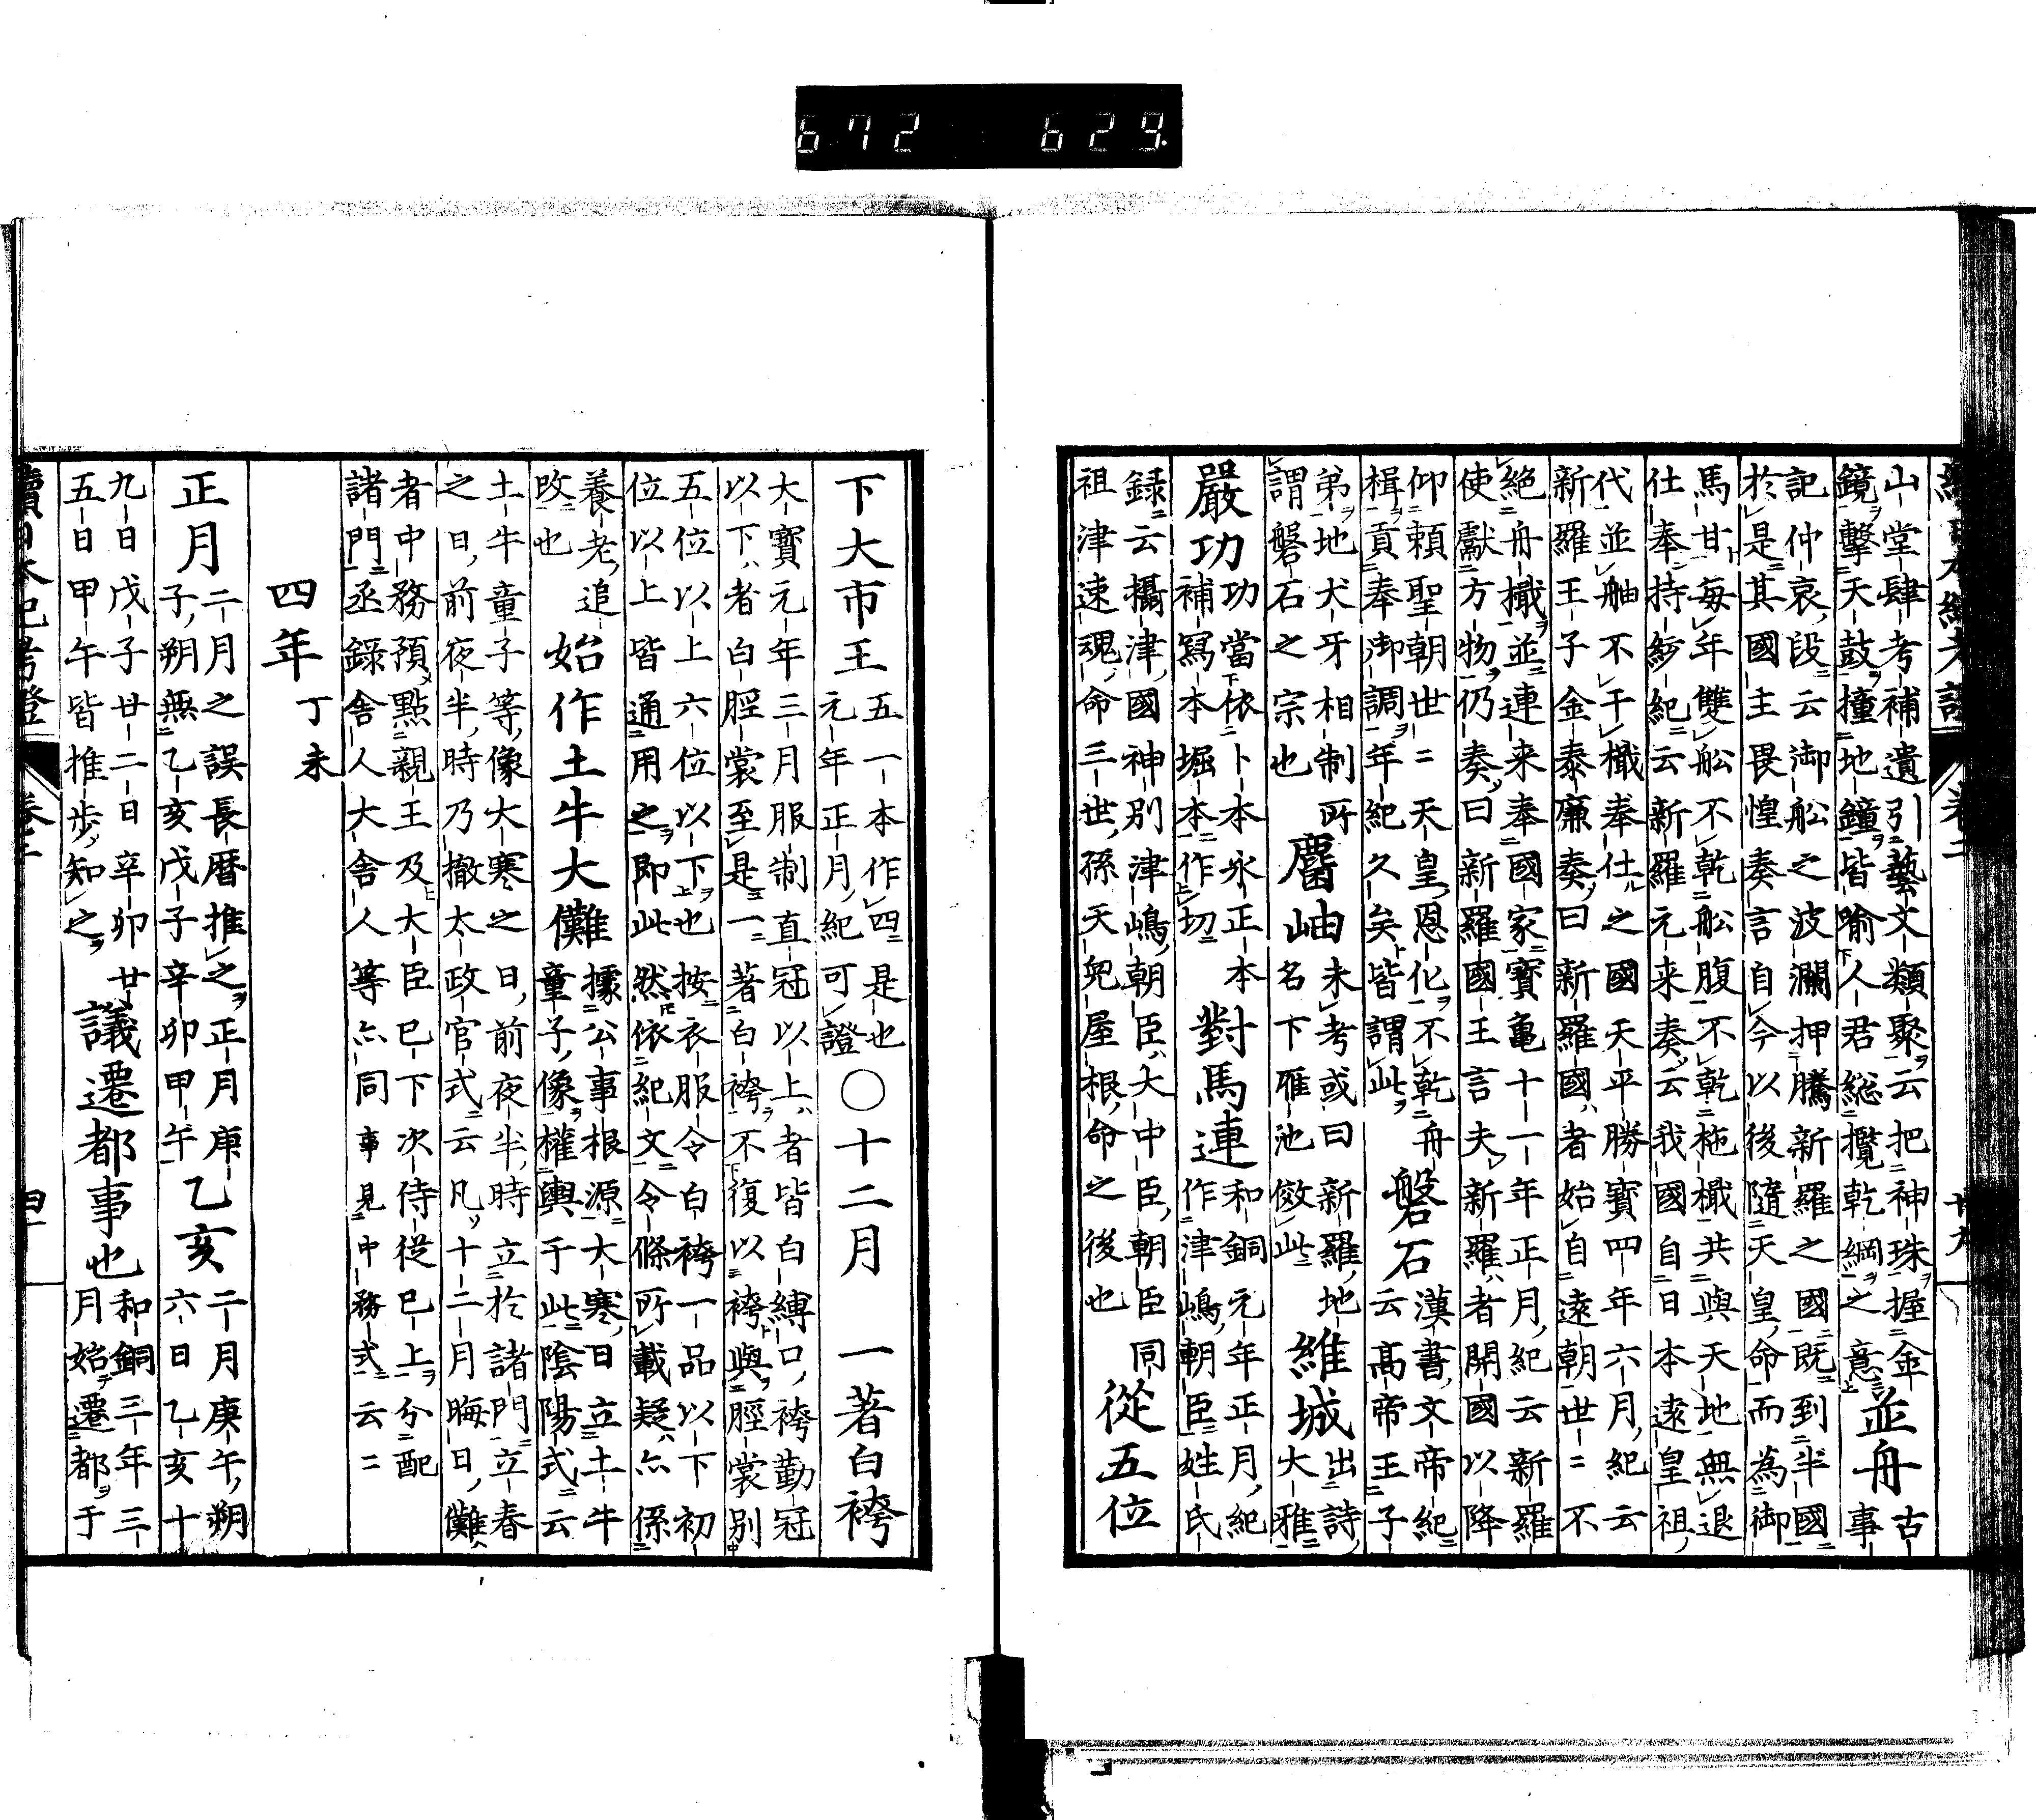 672 629.
山堂肆考補遺引藝文類聚云把神珠握金
鏡擊天鼓撞地鐘皆喻人君総攬乾綱之意
並舟
古事
記仲哀段云御舩之波瀾押騰新羅之國既到半國
於是其國主畏惶奏言自今以後隨天皇命而為御
馬甘毎年雙舩不乾舩腹不乾柂檝共與天地無退
仕奉持紗紀云新羅元来奏云我國自日本遠皇祖
代並舳不干檝奉仕之國天平勝寶四年六月紀云
新羅王子金泰廉奏曰新羅國者始自遠朝世二不
絕舟檝並連来奉國家寶亀十一年正月紀云新羅
使獻方物仍奏曰新羅國王言夫新羅者開國以降
仰頼聖朝世二天皇恩化不乾舟
楫貢奉御調年紀久矣皆謂此
磐石
漢書文帝紀
云高帝王子
弟地犬牙相制所
謂磐石之宗也
麕岫
未考或曰新羅地
名下雁池傚此
維城
出詩
大雅
嚴功
功當依卜本永正本
補寫本堀本作切
對馬連
和銅元年正月紀
作津嶋朝臣姓氏
録云攝津國神別津嶋朝臣大中臣朝臣同
祖津速魂命三世孫天兒屋根命之後也
從五位
下大市王
五一本作四是也
元年正月紀可證
○十二月
一著白袴
大寶元年三月服制直冠以上者皆白縛口袴勤冠
以下者白脛裳至是一著白袴不復以袴與脛裳別
五位以上六位以下也按衣服令白袴一品以下初
位以上皆通用之即此然依紀文令條所載疑亦係
養老追
改也
始作土牛大儺
據公事根源大寒日立土牛
童子像權輿于此陰陽式云
土牛童子等像大寒之日前夜半時立於諸門立春
之日前夜半時乃撤太政官式云凡十二月晦日儺
者中務預點親王及大臣已下次侍従已上分配
諸門丞錄舍人大舍人等亦同事見中務式云二
四年
丁未
正月
二月之誤長暦推之正月庚
子朔無乙亥戊子辛卯甲午
乙亥
二月庚午朔
六日乙亥十
九日戊子廿二日辛卯廿
五日甲午皆推歩知之
議遷都事也
和銅三年三
月始遷都于
續日本紀考證